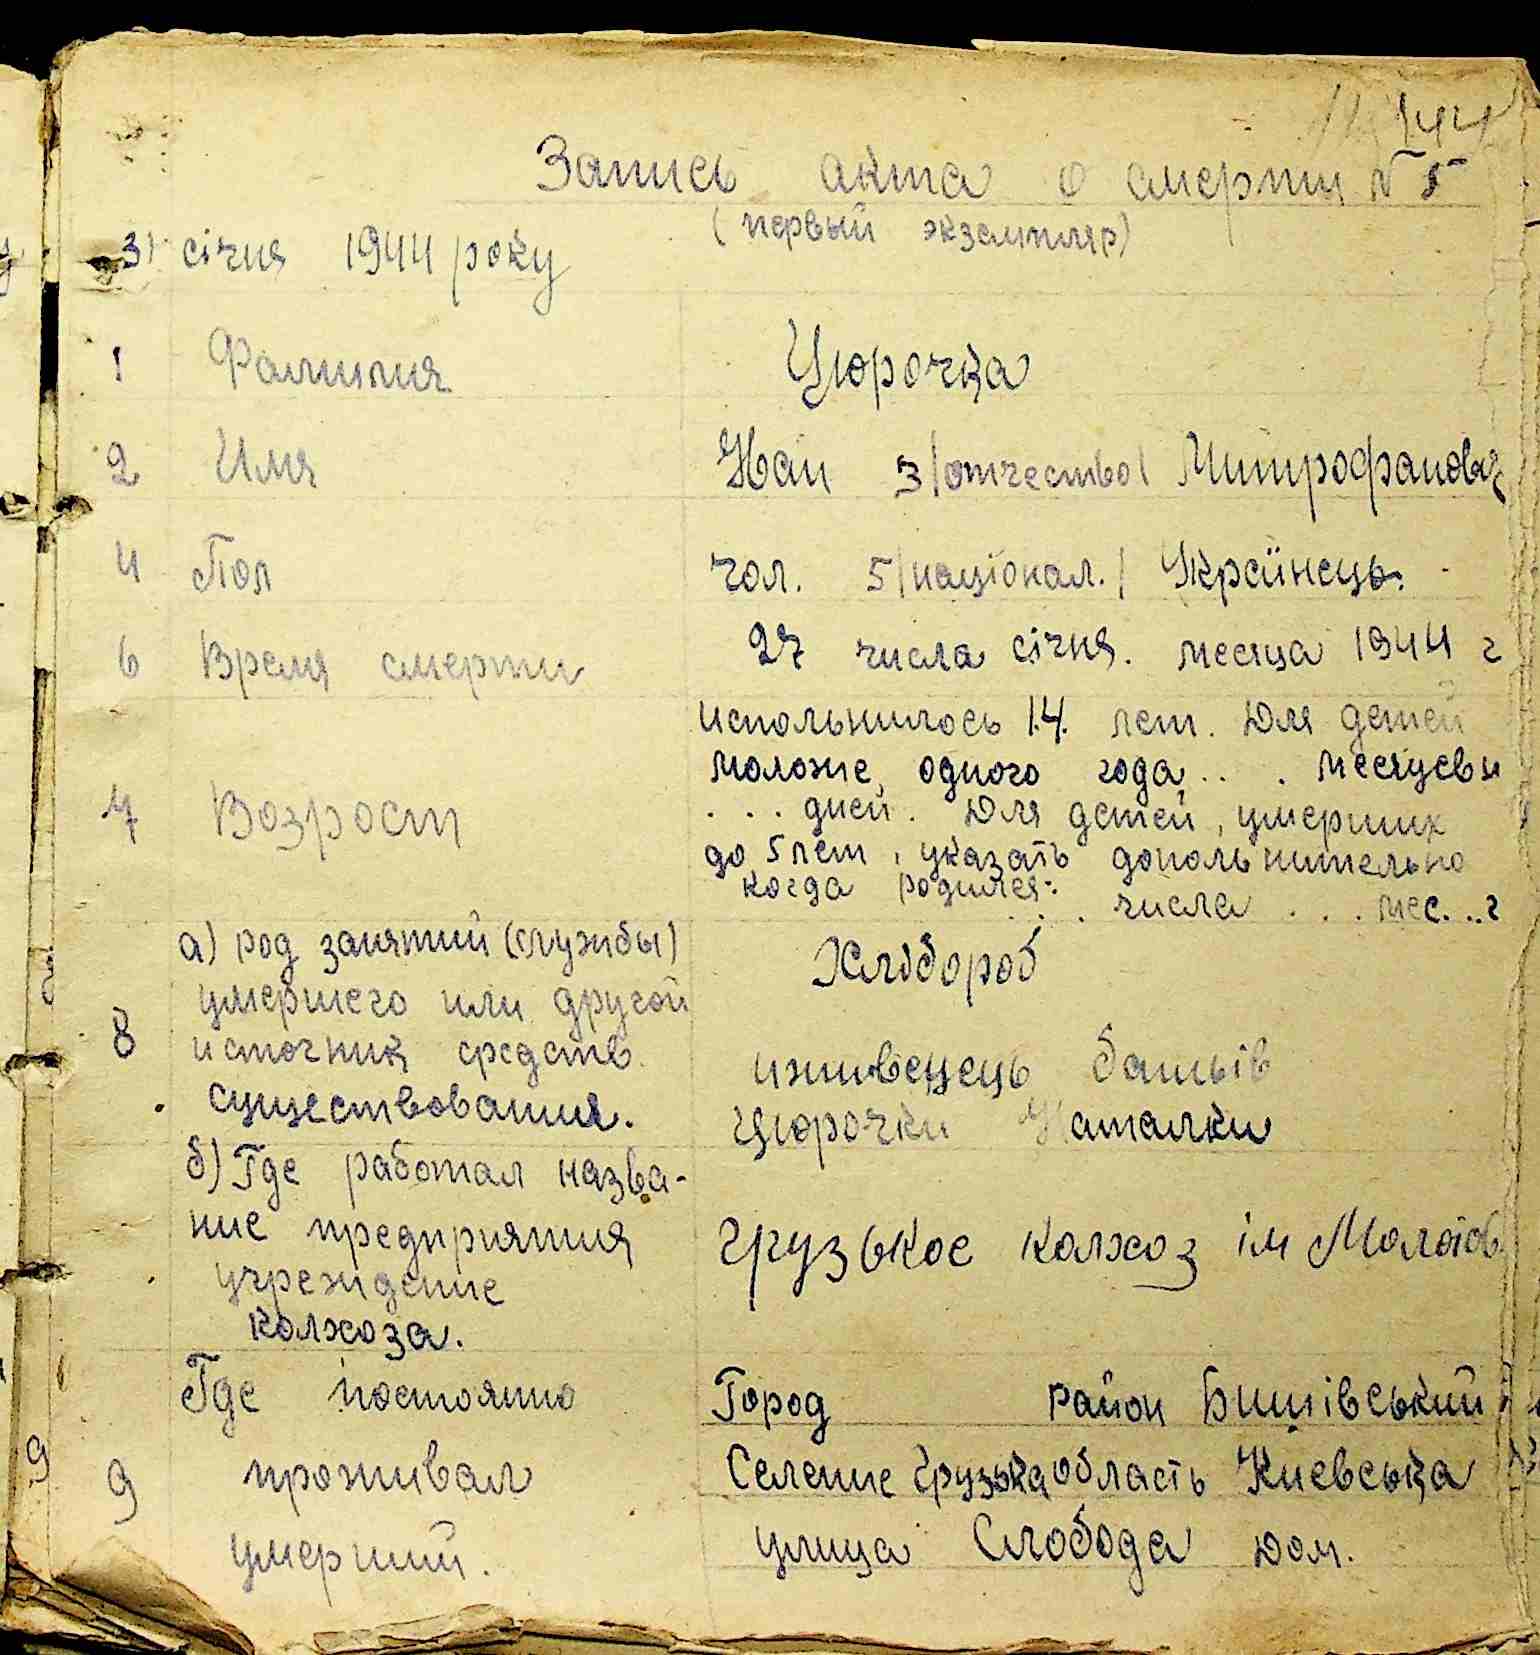 144
Запись акта о смерти № 5
(первый экземпляр)
31 січня 1944 року
1 Фамилия Цюрочка
2 Имя Иван 3/отчество/ Митрофанович
4 Пол чол. 5/націонал./ Українець.
6 Время смерти 27 числа січня. месяца 1944 г
испольнилось 14 лет. Для детей
моложе одного года . . . месяцев и
7 Возрост . . . дней. Для детей, умерших
до 5 лет, указать допольнительно
когда родился:
. . . числа . . . мес. .. г
а) род занятий (службы) Хлібороб
умершего или другой
8 источник средств иживенець батьів
существования. Цюрочки Наталки
б) Где работал назва-
ние предприятия Грузькое колхоз ім Молотов
учреждение
колхоза.
Где постоянно Город район Бишівський
9 проживал Селение Грузька область Киевська
умерший. улица Слобода дом.
9